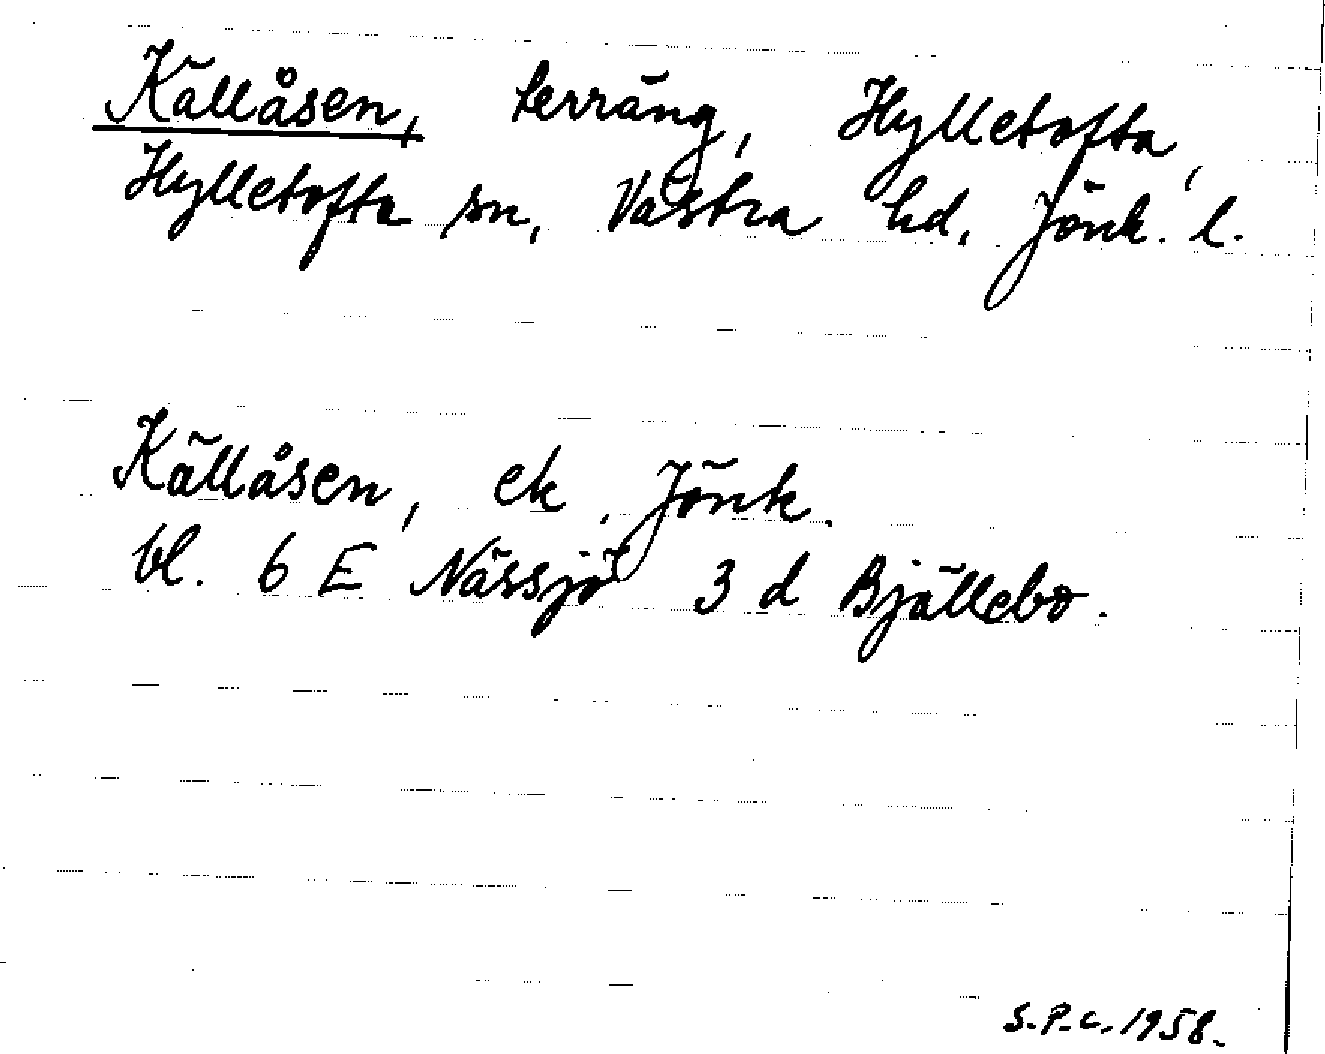 Källåsen, terräng, Hylletofta,
Hylletofta sn, Västra hd. Jönk. l.
Källåsen, ek. Jönk.
bl. 6 E Nässjö 3 d Bjällebo.
S.P.C. 1958.